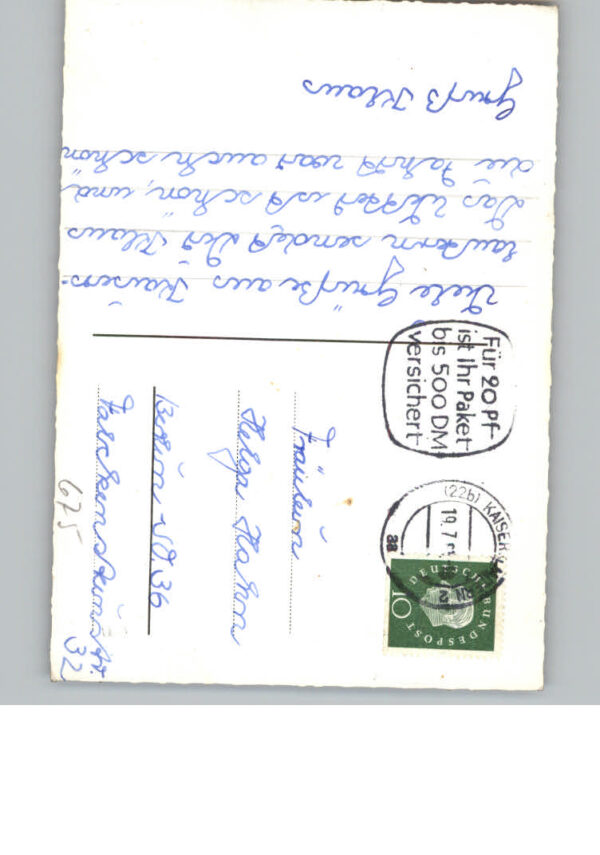 Viele Grüße aus Kaisers-
lautern sendet dir Klaus
Das Wetter ist schön, und
die Fahrt war auch schön
Gruß Klaus
Für 20 Pf
ist Ihr Paket
bis 500 DM
versichert
(22b) KAISERS
19.7.
aa
DEUTSCHE BUNDESPOST
10
Fräulein
Helga Hahn
Berlin-SO 36
Falckensteinstr.
32
675